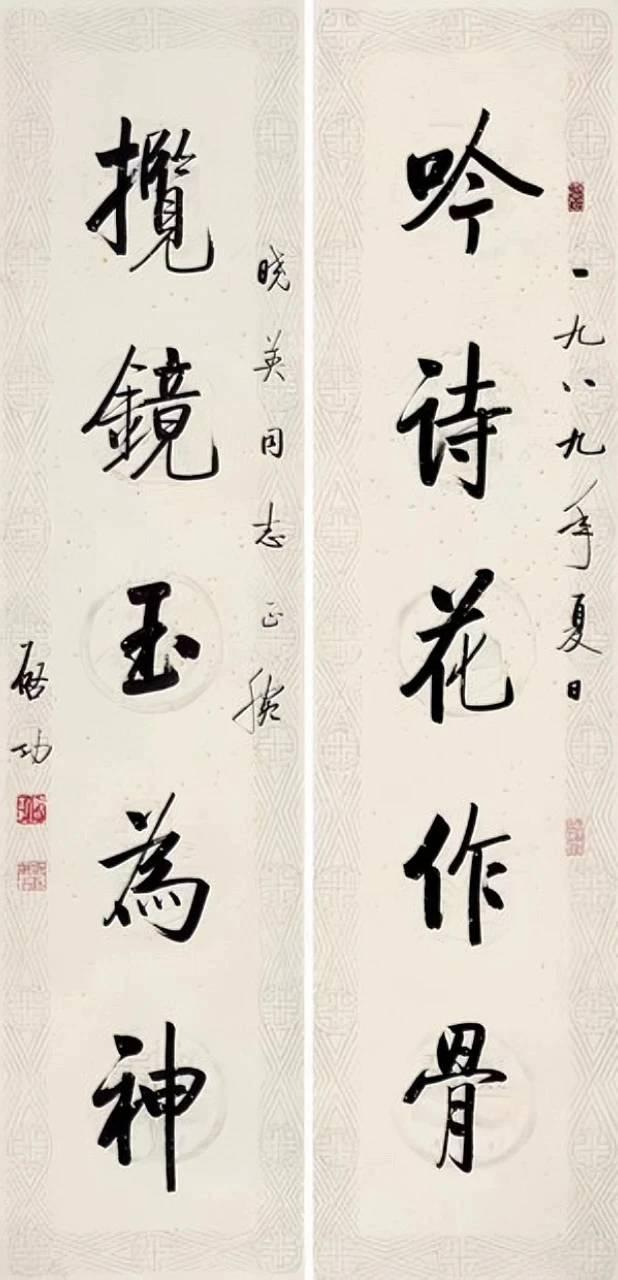 一九八九年夏日
吟诗花作骨
晓英同志正腕
攬鏡玉為神
启功